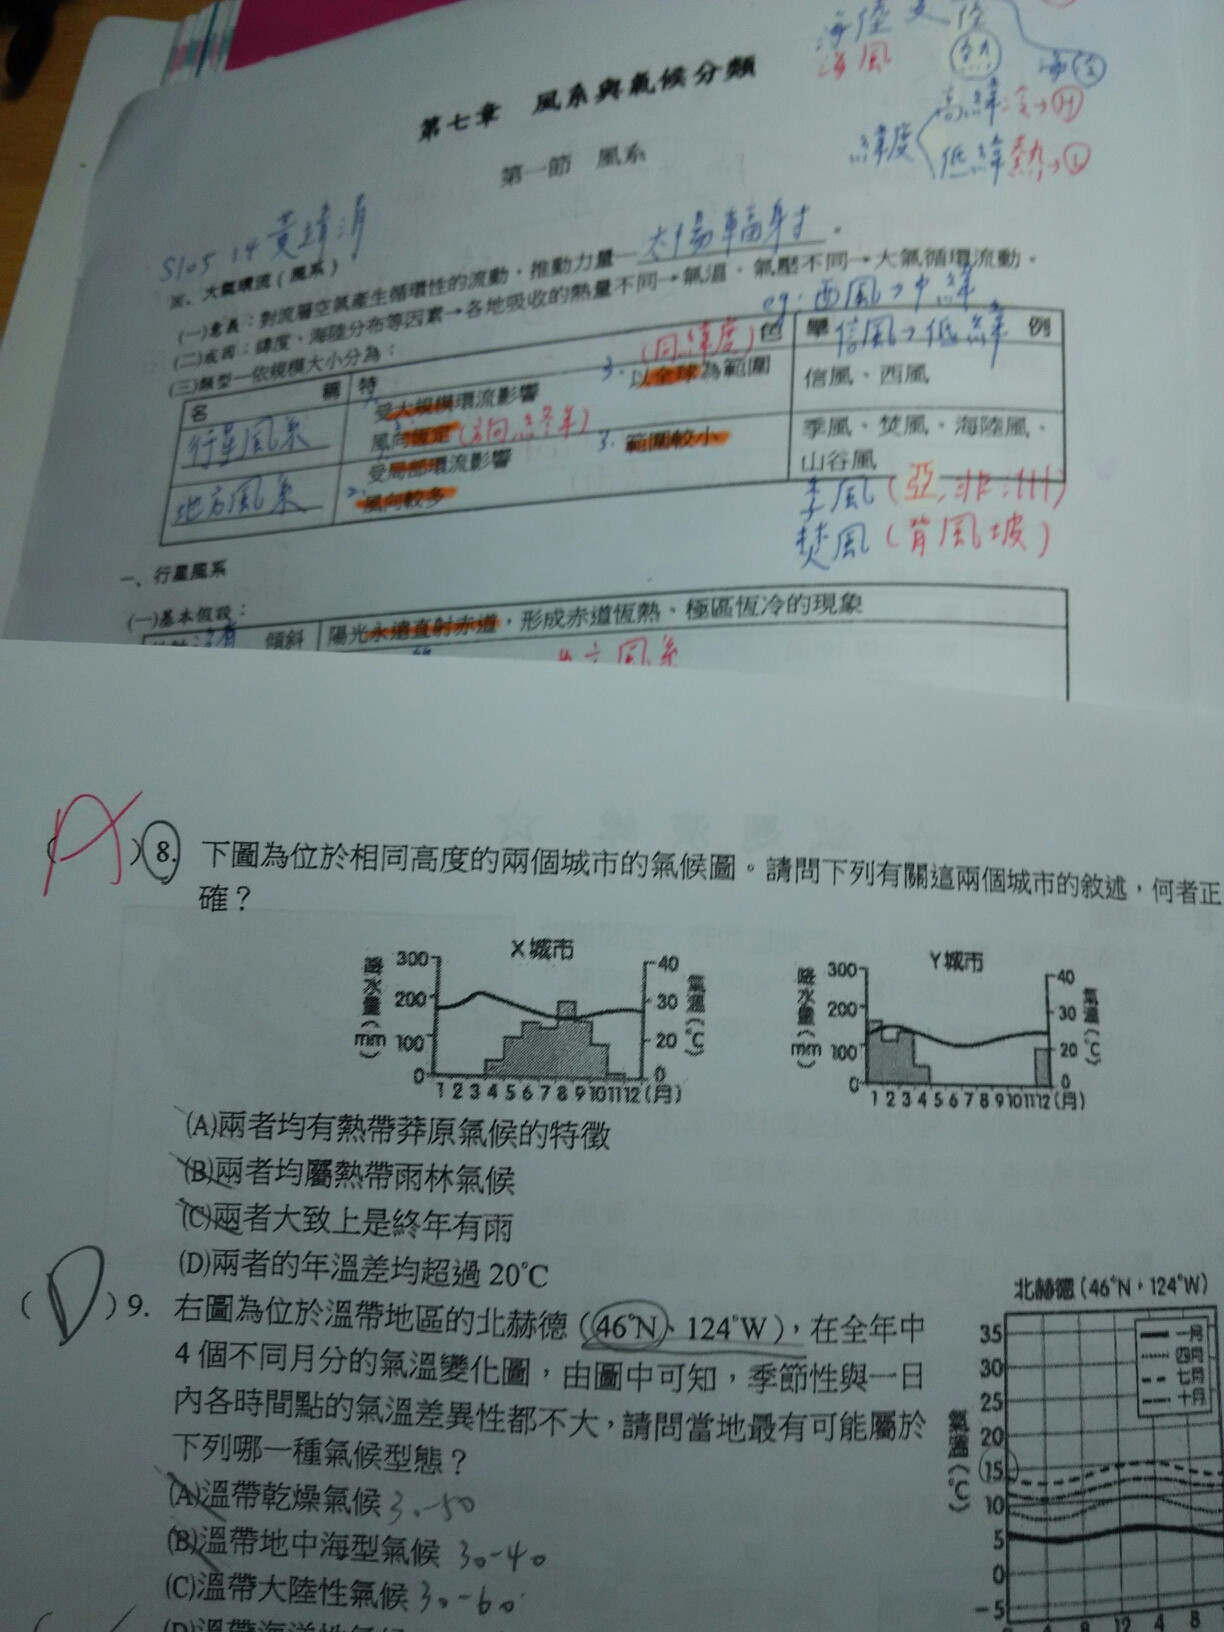 海陸
海風
熱
高緯冷→H
緯度
低緯熱→L
第七章 風系與氣候分類
第一節 風系
S105 14 黃
※、大氣環流(風系)
(一)意義：對流層空氣產生循環性的流動，推動力量—太陽輻射。
(二)成因：緯度、海陸分布等因素→各地吸收的熱量不同→氣溫、氣壓不同→大氣循環流動。
eg. 西風→中緯
信風→低緯
(三)類型—依規模大小分為：
(同緯度)
名 稱 特 色 舉 例
行星風系 受大規模環流影響 3. 以全球為範圍 信風、西風
風向恆定
地方風系 受局部環流影響 3. 範圍較小 季風、焚風、海陸風、
2. 風向較多 山谷風
季風(亞,非洲)
焚風(背風坡)
一、行星風系
(一)基本假設：
沒有 傾斜 陽光永遠直射赤道，形成赤道恆熱、極區恆冷的現象
(A) 8. 下圖為位於相同高度的兩個城市的氣候圖。請問下列有關這兩個城市的敘述，何者正
確？
X城市
降水量(mm)
300
200
100
0
40
30
20
0
氣溫(℃)
1 2 3 4 5 6 7 8 9 10 11 12(月)
Y城市
降水量(mm)
300
200
100
0
40
30
20
0
氣溫(℃)
1 2 3 4 5 6 7 8 9 10 11 12(月)
(A)兩者均有熱帶莽原氣候的特徵
(B)兩者均屬熱帶雨林氣候
(C)兩者大致上是終年有雨
(D)兩者的年溫差均超過 20℃
(D) 9. 右圖為位於溫帶地區的北赫德(46°N、124°W)，在全年中
4 個不同月分的氣溫變化圖，由圖中可知，季節性與一日
內各時間點的氣溫差異性都不大，請問當地最有可能屬於
下列哪一種氣候型態？
(A)溫帶乾燥氣候 30-50
(B)溫帶地中海型氣候 30-40
(C)溫帶大陸性氣候 30-60
(D)溫帶海洋性氣候
北赫德(46°N，124°W)
一月
四月
七月
十月
氣溫(℃)
35
30
25
20
15
10
5
0
-5
0 4 8 12 4 8